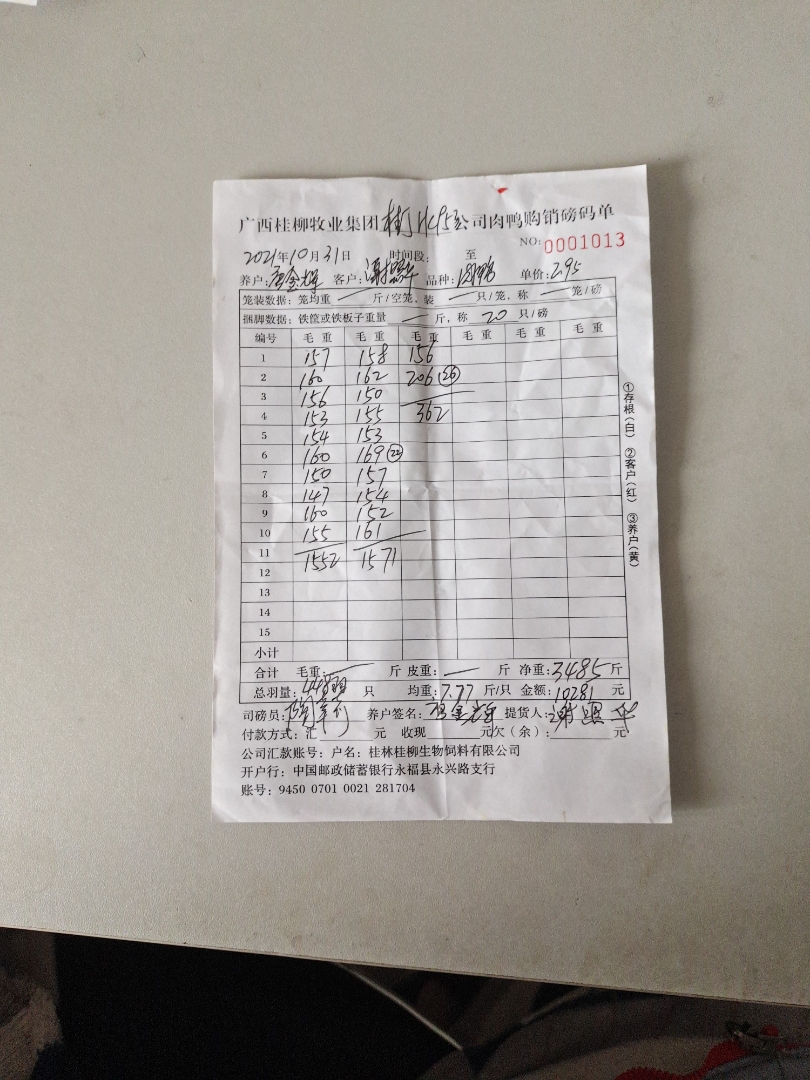 广西桂柳牧业集团桂柳 公司肉鸭购销磅码单
NO: 0001013
2021年10月31日 时间段: 至
养户: 客户: 品种:肉鸭 单价:2.95
笼装数据: 笼均重 — 斤/空笼, 装 — 只/笼, 称 — 笼/磅
捆脚数据: 铁筐或铁板子重量 — 斤, 称 20 只/磅
编号 毛重 毛重 毛重 毛重 毛重 毛重
1 157 158 156
2 160 162 206 (26)
3 156 150
4 153 155 362
5 154 153
6 160 169 (22)
7 150 157
8 147 154
9 160 152
10 155 161
11 1552 1571
12
13
14
15
小计
合计 毛重: — 斤 皮重: — 斤 净重:3485斤
总羽量:448羽 只 均重:7.77斤/只 金额:10281元
司磅员: 养户签名: 提货人:
付款方式: 汇 元 收现 元欠(余): 元
公司汇款账号: 户名: 桂林桂柳生物饲料有限公司
开户行: 中国邮政储蓄银行永福县永兴路支行
账号: 9450 0701 0021 281704
①存根(白) ②客户(红) ③养户(黄)